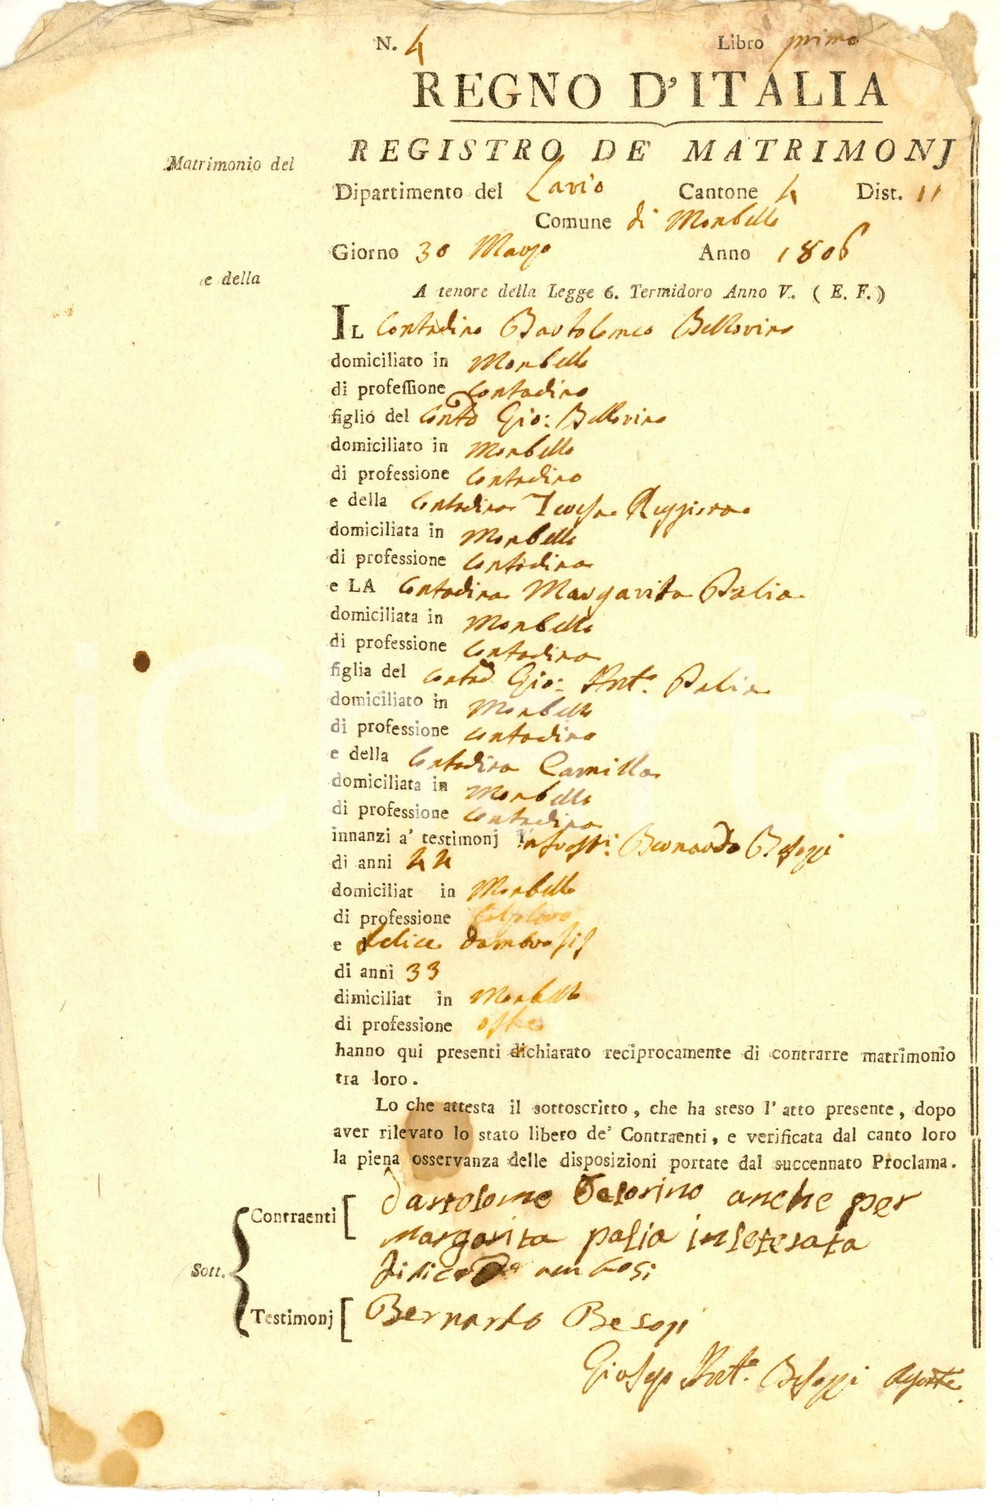 N. 4 Libro primo
REGNO D'ITALIA
REGISTRO DE MATRIMONJ
Matrimonio del
Dipartimento del Lario Cantone 4 Dist. 11
Comune di Monbello
Giorno 30 Marzo Anno 1806
e della
A tenore della Legge 6. Termidoro Anno V. ( E. F. )
IL Contadino Bartolomeo Bellorino
domiciliato in Monbello
di professione Contadino
figlio del Contd Gio: Bellorino
domiciliato in Monbello
di professione Contadino
e della Contadina Teresa
domiciliata in Monbello
di professione Contadina
e LA Contadina Margarita Palia
domiciliata in Monbello
di professione Contadina
figlia del Contad Gio: Ant.o Palia
domiciliato in Monbello
di professione Contadino
e della Contadina Camilla
domiciliata in Monbello
di professione Contadina
innanzi a' testimonj Bernardo Besozzi
di anni 44
domiciliat in Monbello
di professione
e Felice dambrosis
di anni 33
dimiciliat in Monbello
di professione oste
hanno qui presenti dichiarato reciprocamente di contrarre matrimonio
tra loro.
Lo che attesta il sottoscritto, che ha steso l' atto presente, dopo
aver rilevato lo stato libero de' Contraenti, e verificata dal canto loro
la piena osservanza delle disposizioni portate dal succennato Proclama.
Contraenti [ Bartolome Belorino anche per
margarita palia inleterata
Sott.
Testimonj [ Bernardo Besozi
Giosep Ant.o Besozzi Agente